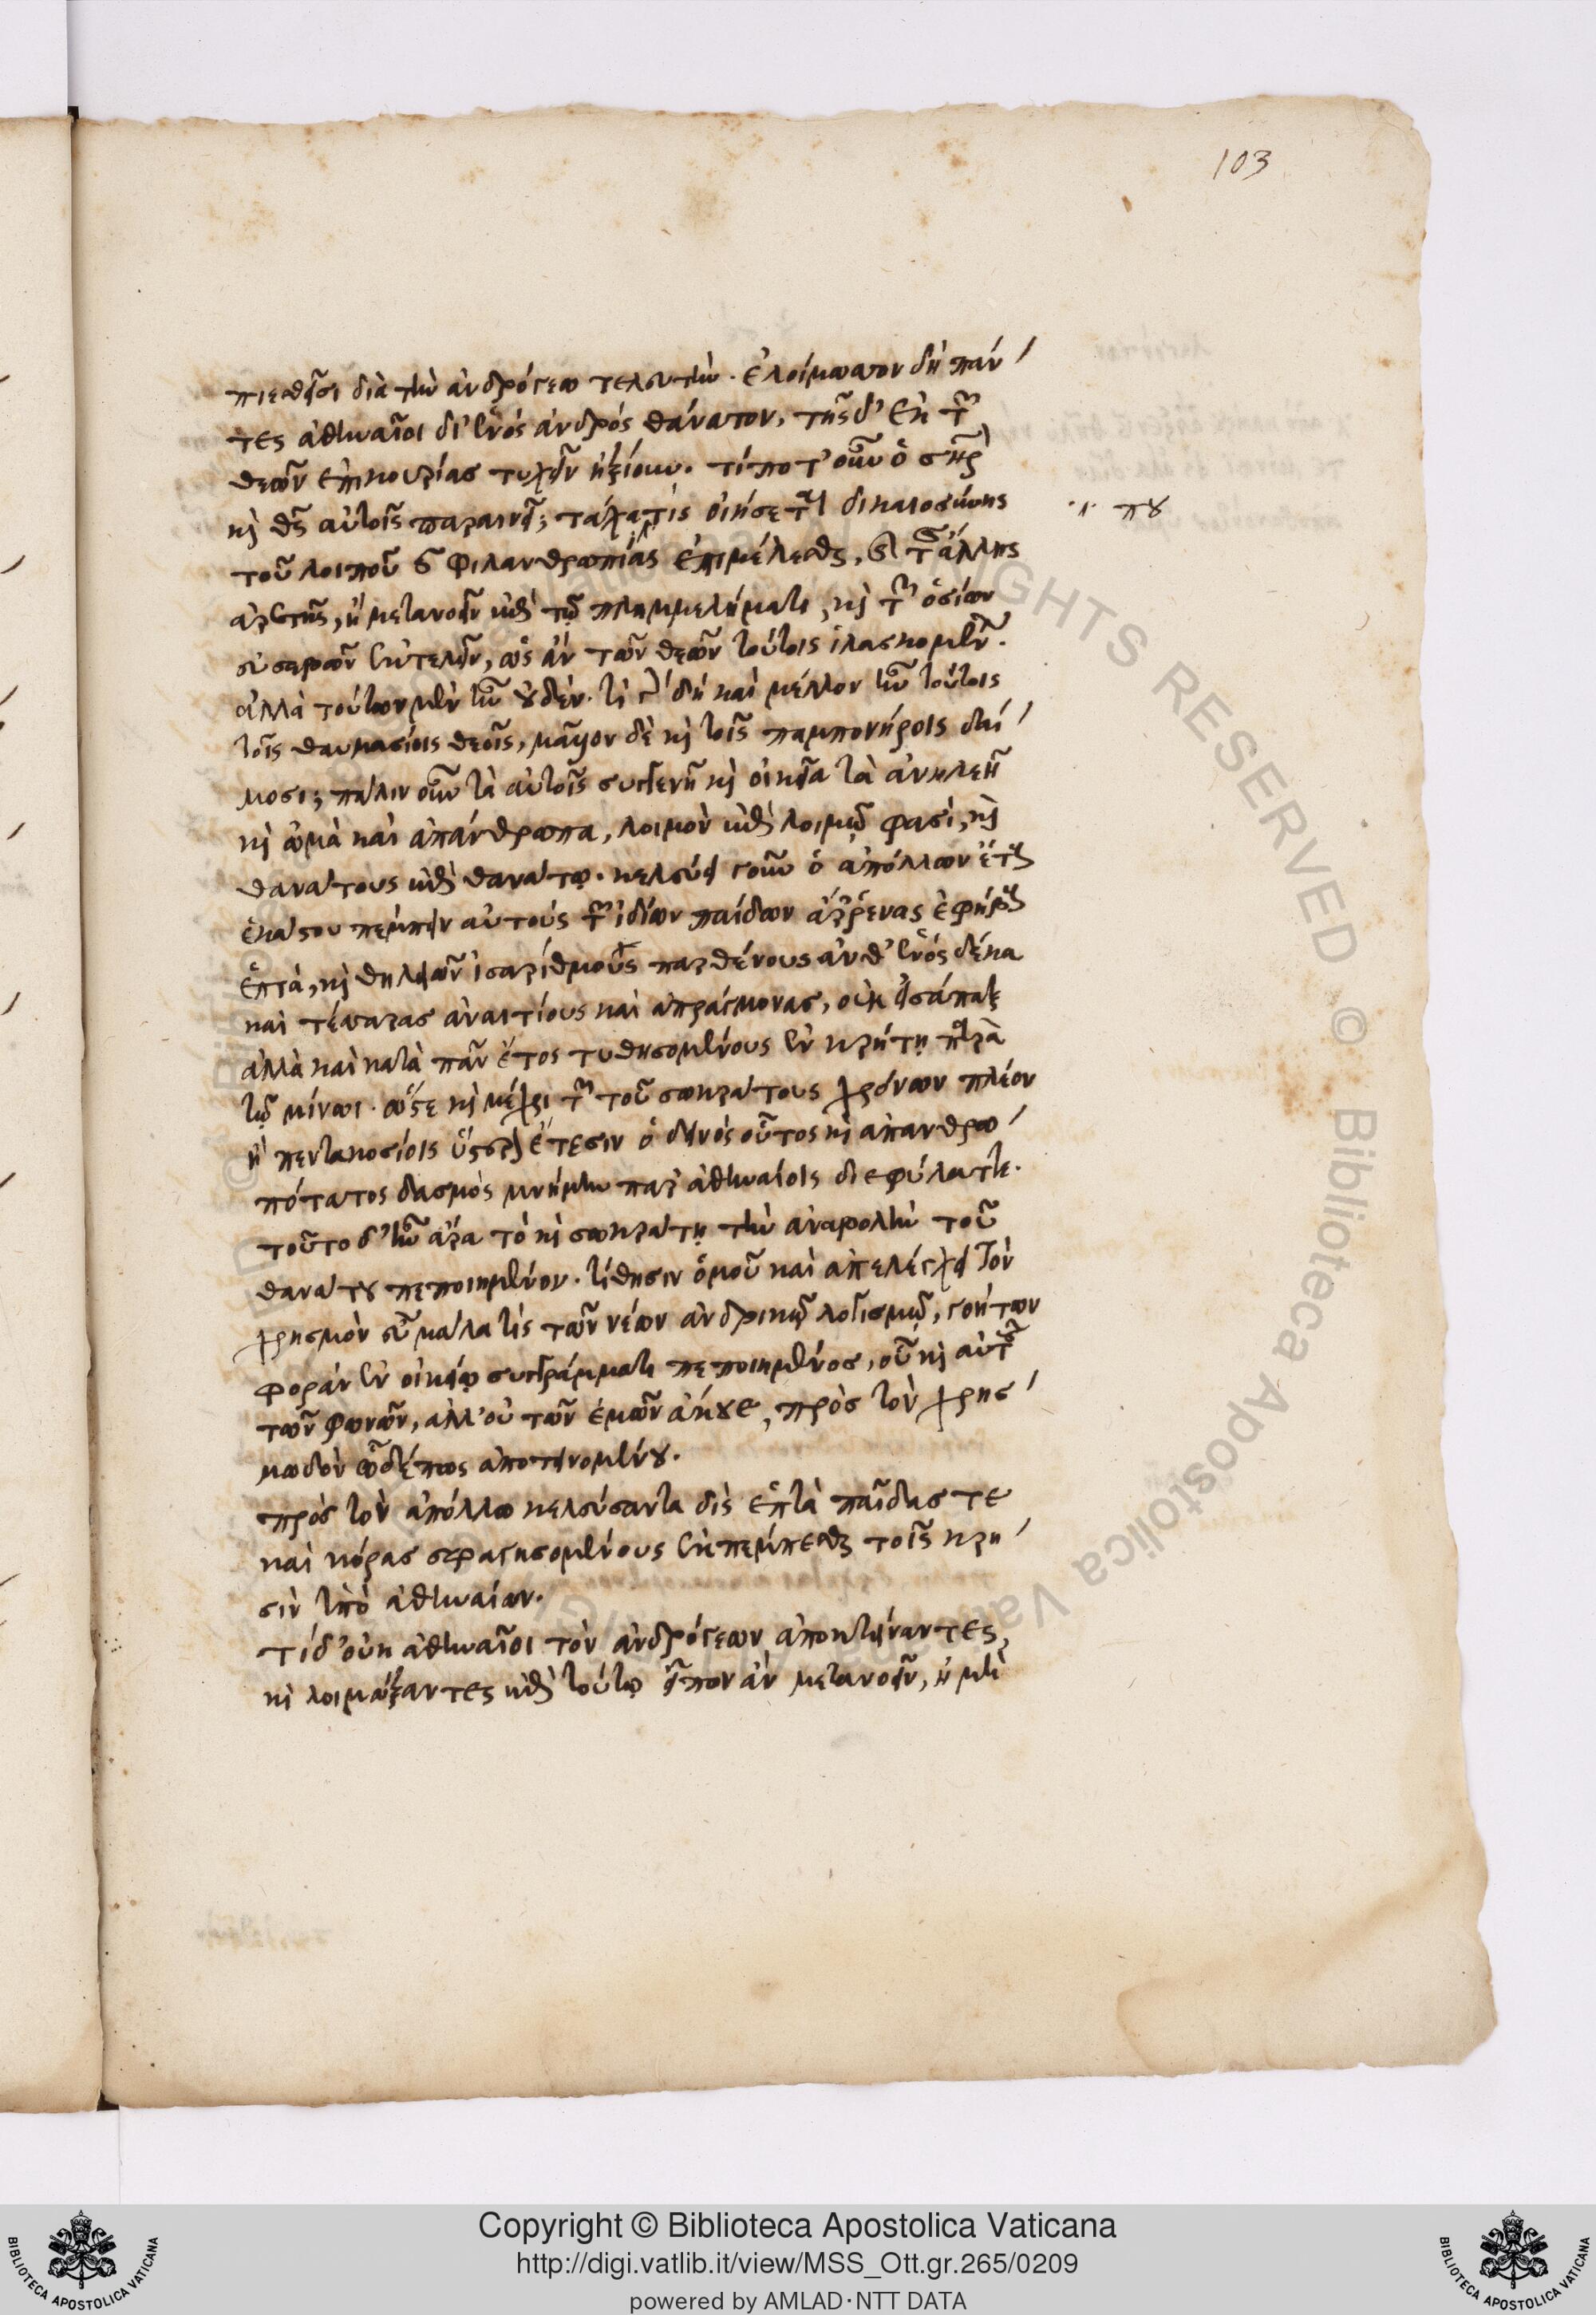 103
πιεσθεῖσι διὰ τὴν ἀνδρόγεω τελευτήν. ἐλοίμωττον δὴ πάν
τες ἀθηναῖοι δι' ἑνὸς ἀνδρὸς θάνατον, τῆς δ' ἐκ τῶν
θεῶν ἐπικουρίας τυχεῖν ἠξίουν. τί ποτ' οὖν ὁ σωτὴρ
καὶ θεὸς αὐτοῖς παραινεῖ; τάχα τίς οἰήσεται δικαιοσύνης
τοῦ λοιποῦ καὶ φιλανθρωπίας ἐπιμέλεσθαι, καὶ τῆς ἄλλης
ἀρετῆς, ἢ μετανοεῖν ἐπὶ τῷ πλημμελήματι, καὶ τῶν ὁσίων
εὐσεβῶν ἐκτελεῖν, ὡς ἂν τῶν θεῶν τούτοις ἱλασκομένων.
ἀλλὰ τούτων μὲν ἦν οὐδέν. τί γὰρ δὴ καὶ μέλλον ἦν τούτοις
τοῖς θαυμασίοις θεοῖς, μᾶλλον δὲ καὶ τοῖς παμπονήροις δαί
μοσι; πάλιν οὖν τὰ αὐτοῖς συγγενῆ καὶ οἰκεῖα τὰ ἀνηλεῆ
καὶ ὠμὰ καὶ ἀπάνθρωπα, λοιμὸν ἐπὶ λοιμῷ φασί, καὶ
θανάτους ἐπὶ θανάτῳ. κελεύει γοῦν ὁ ἀπόλλων ἔτους
ἑκάστου πέμπειν αὐτοὺς τῶν ἰδίων παίδων ἄρρενας ἐφήβους
ἑπτὰ, καὶ θηλειῶν ἰσαρίθμους παρθένους ἀνθ' ἑνὸς δέκα
καὶ τέσσαρας ἀναιτίους καὶ ἀπράγμονας, οὐκ εἰσάπαξ
ἀλλὰ καὶ κατὰ πᾶν ἔτος τυθησομένους ἐν κρήτῃ παρὰ
τῷ μίνωι. ὥστε καὶ μέχρι τῶν τοῦ σωκράτους χρόνων πλέον
ἢ πεντακοσίοις ὕστερον ἔτεσιν ὁ δεινὸς οὗτος καὶ ἀπανθρω
πότατος δασμὸς μνήμην παρ' ἀθηναίοις διεφύλαττε.
τοῦτο δ' ἦν ἄρα τὸ καὶ σωκράτη τὴν ἀναβολὴν τοῦ
θανάτου πεποιημένον. τίθησιν ὁμοῦ καὶ ἀπελέγχει τὸν
χρησμὸν εὖ μάλα τις τῶν νέων ἀνδρικῷ λογισμῷ, γοήτων
φορὰν ἐν οἰκείῳ συγγράμματι πεποιημένος, οὗ καὶ αὐτοῦ
τῶν φωνῶν, ἀλλ' οὐ τῶν ἐμῶν ἄκουε, πρὸς τὸν χρησ
μωδὸν ὧδέ πως ἀποτεινομένου.
πρὸς τὸν ἀπόλλω κελεύσαντα δὶς ἑπτὰ παῖδας τε
καὶ κόρας σφαγησομένους ἐκπέμπεσθαι τοῖς κρη
σὶν ὑπὸ ἀθηναίων.
τί δ' οὐκ ἀθηναῖοι τὸν ἀνδρόγεων ἀποκτείναντες,
καὶ λοιμώξαντες ἐπὶ τούτῳ εἶπον ἂν μετανοεῖν, ἢ μὴ
Copyright © Biblioteca Apostolica Vaticana
http://digi.vatlib.it/view/MSS_Ott.gr.265/0209
powered by AMLAD·NTT DATA
BIBLIOTECA APOSTOLICA VATICANA
BIBLIOTECA APOSTOLICA VATICANA